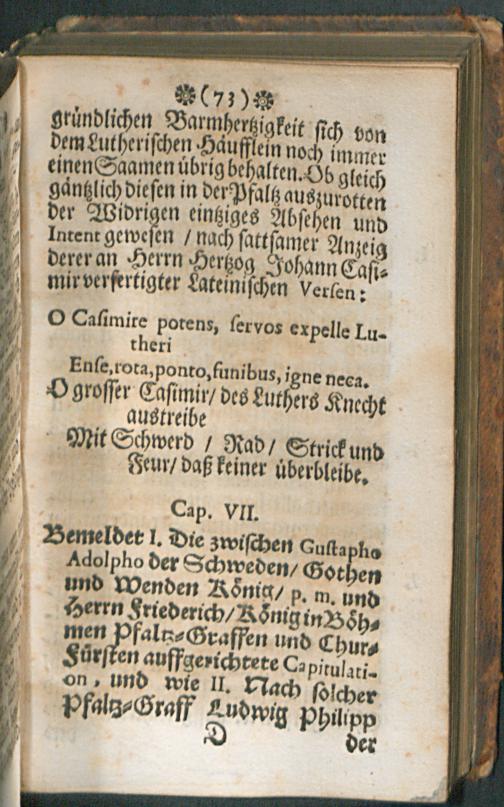 (73)
gründlichen Barmhertzigkeit sich von
dem Lutherischen Häufflein noch immer
einen Saamen übrig behalten. Ob gleich
gäntzlich diesen in der Pfaltz auszurotten
der Widrigen eintziges Absehen und
Intent gewesen / nach sattsamer Anzeig
derer an Herrn Hertzog Johann Casi-
mir verfertigter Lateinischen Versen:
O Casimire potens, servos expelle Lu-
theri
Ense, rota, ponto, funibus, igne neca.
O grosser Casimir/ des Luthers Knecht
austreibe
Mit Schwerd / Rad/ Strick und
Feur/ daß keiner überbleibe.
Cap. VII.
Bemeldet I. Die zwischen Gustapho
Adolpho der Schweden/ Gothen
und Wenden König/ p. m. und
Herrn Friederich/ König in Böh-
men Pfaltz-Graffen und Chur-
Fürsten auffgerichtete Capitulati-
on, und wie II. Nach solcher
Pfaltz-Graff Ludwig Philipp
D der